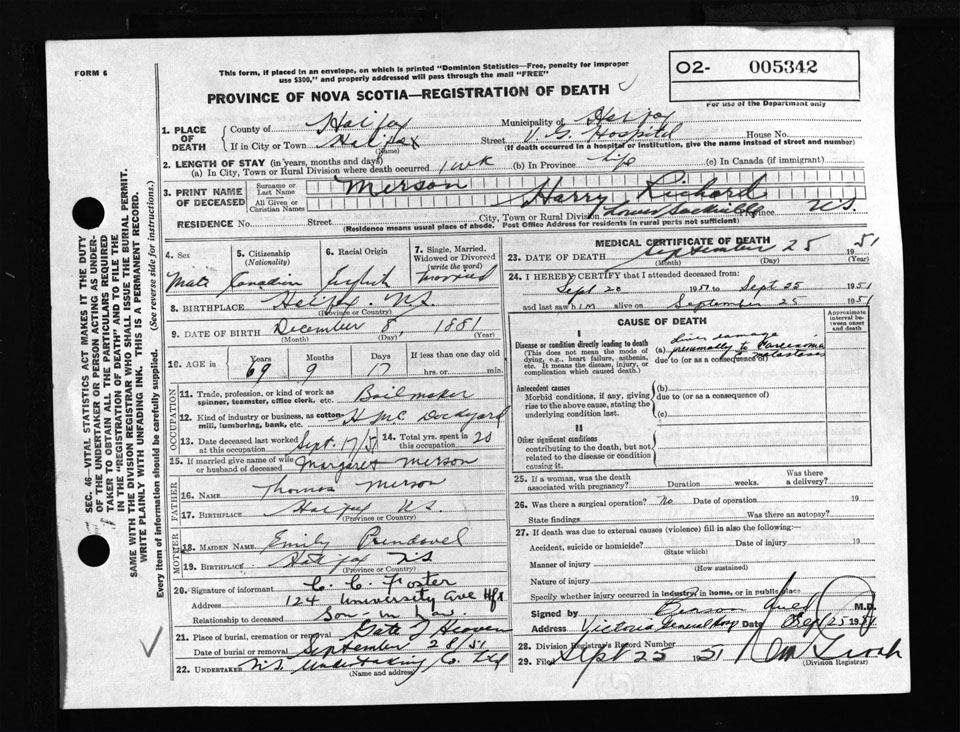 FORM 6
This form, if placed in an envelope, on which is printed "Dominion Statistics—Free, penalty for improper
use $300," and properly addressed will pass through the mail "FREE"
PROVINCE OF NOVA SCOTIA—REGISTRATION OF DEATH
O2- 005342
For use of the Department only
1. PLACE OF DEATH
County of Halifax Municipality of Halifax
If in City or Town Halifax Street V.G. Hospital House No.
(Name) (If death occurred in a hospital or institution, give the name instead of street and number)
2. LENGTH OF STAY (in years, months and days)
(a) In City, Town or Rural Division where death occurred 1 wk (b) In Province life (c) In Canada (if immigrant)
3. PRINT NAME OF DECEASED
Surname or Last Name Merson
All Given or Christian Names Harry Richard
RESIDENCE No. Street City, Town or Rural Division Lower Sackville Province N.S.
(Residence means usual place of abode. Post Office Address for residents in rural parts not sufficient)
4. Sex 5. Citizenship (Nationality) 6. Racial Origin 7. Single, Married, Widowed or Divorced (write the word)
Male Canadian English Married
8. BIRTHPLACE Halifax N.S.
(Province or Country)
9. DATE OF BIRTH December 8, 1881
(Month) (Day) (Year)
10. AGE in Years Months Days If less than one day old
69 9 17 hrs. or min.
OCCUPATION
11. Trade, profession, or kind of work as spinner, teamster, office clerk, etc. Boilmaker
12. Kind of industry or business, as cotton-mill, lumbering, bank, etc. H.M.C. Dockyard
13. Date deceased last worked at this occupation Sept. 17/51 14. Total yrs. spent in this occupation 20
15. If married give name of wife or husband of deceased Margaret Merson
FATHER
16. NAME Thomas Merson
17. BIRTHPLACE Halifax N.S.
(Province or Country)
MOTHER
18. MAIDEN NAME Emily
19. BIRTHPLACE Halifax N.S.
(Province or Country)
20. Signature of informant C. C. Foster
Address 124 University Ave Hfx
Relationship to deceased Son in law.
21. Place of burial, cremation or removal Gate of Heaven
Date of burial or removal September 28/51
22. UNDERTAKER N.S. Undertaking Co. Ltd
(Name and address)
MEDICAL CERTIFICATE OF DEATH
23. DATE OF DEATH September 25 1951
(Month) (Day) (Year)
24. I HEREBY CERTIFY that I attended deceased from
Sept 20 1951 to Sept 25 1951
and last saw him alive on September 25 1951
CAUSE OF DEATH
Approximate interval between onset and death
I
Disease or condition directly leading to death
(This does not mean the mode of dying, e.g., heart failure, asthenia, etc. It means the disease, injury, or complication which caused death.)
(a) Liver damage
presumably to Carcinoma
due to (or as a consequence of) metastases
Antecedent causes
Morbid conditions, if any, giving rise to the above cause, stating the underlying condition last.
(b)
due to (or as a consequence of)
(c)
II
Other significant conditions
contributing to the death, but not related to the disease or condition causing it.
25. If a woman, was the death associated with pregnancy? Duration weeks. Was there a delivery?
26. Was there a surgical operation? No Date of operation 19
State findings Was there an autopsy?
27. If death was due to external causes (violence) fill in also the following:—
Accident, suicide or homicide? Date of injury 19
(State which)
Manner of injury
(How sustained)
Nature of injury
Specify whether injury occurred in industry, in home, or in public place
Signed by M.D.
Address Victoria General Hosp Date Sept 25 1951
28. Division Registrar's Record Number
29. Filed Sept 25 1951
(Division Registrar)
SEC. 46—VITAL STATISTICS ACT MAKES IT THE DUTY
OF THE UNDERTAKER OR PERSON ACTING AS UNDER-
TAKER TO OBTAIN ALL THE PARTICULARS REQUIRED
IN THE "REGISTRATION OF DEATH" AND TO FILE THE
SAME WITH THE DIVISION REGISTRAR WHO SHALL ISSUE THE BURIAL PERMIT.
WRITE PLAINLY WITH UNFADING INK. THIS IS A PERMANENT RECORD.
Every item of information should be carefully supplied. (See reverse side for instructions.)